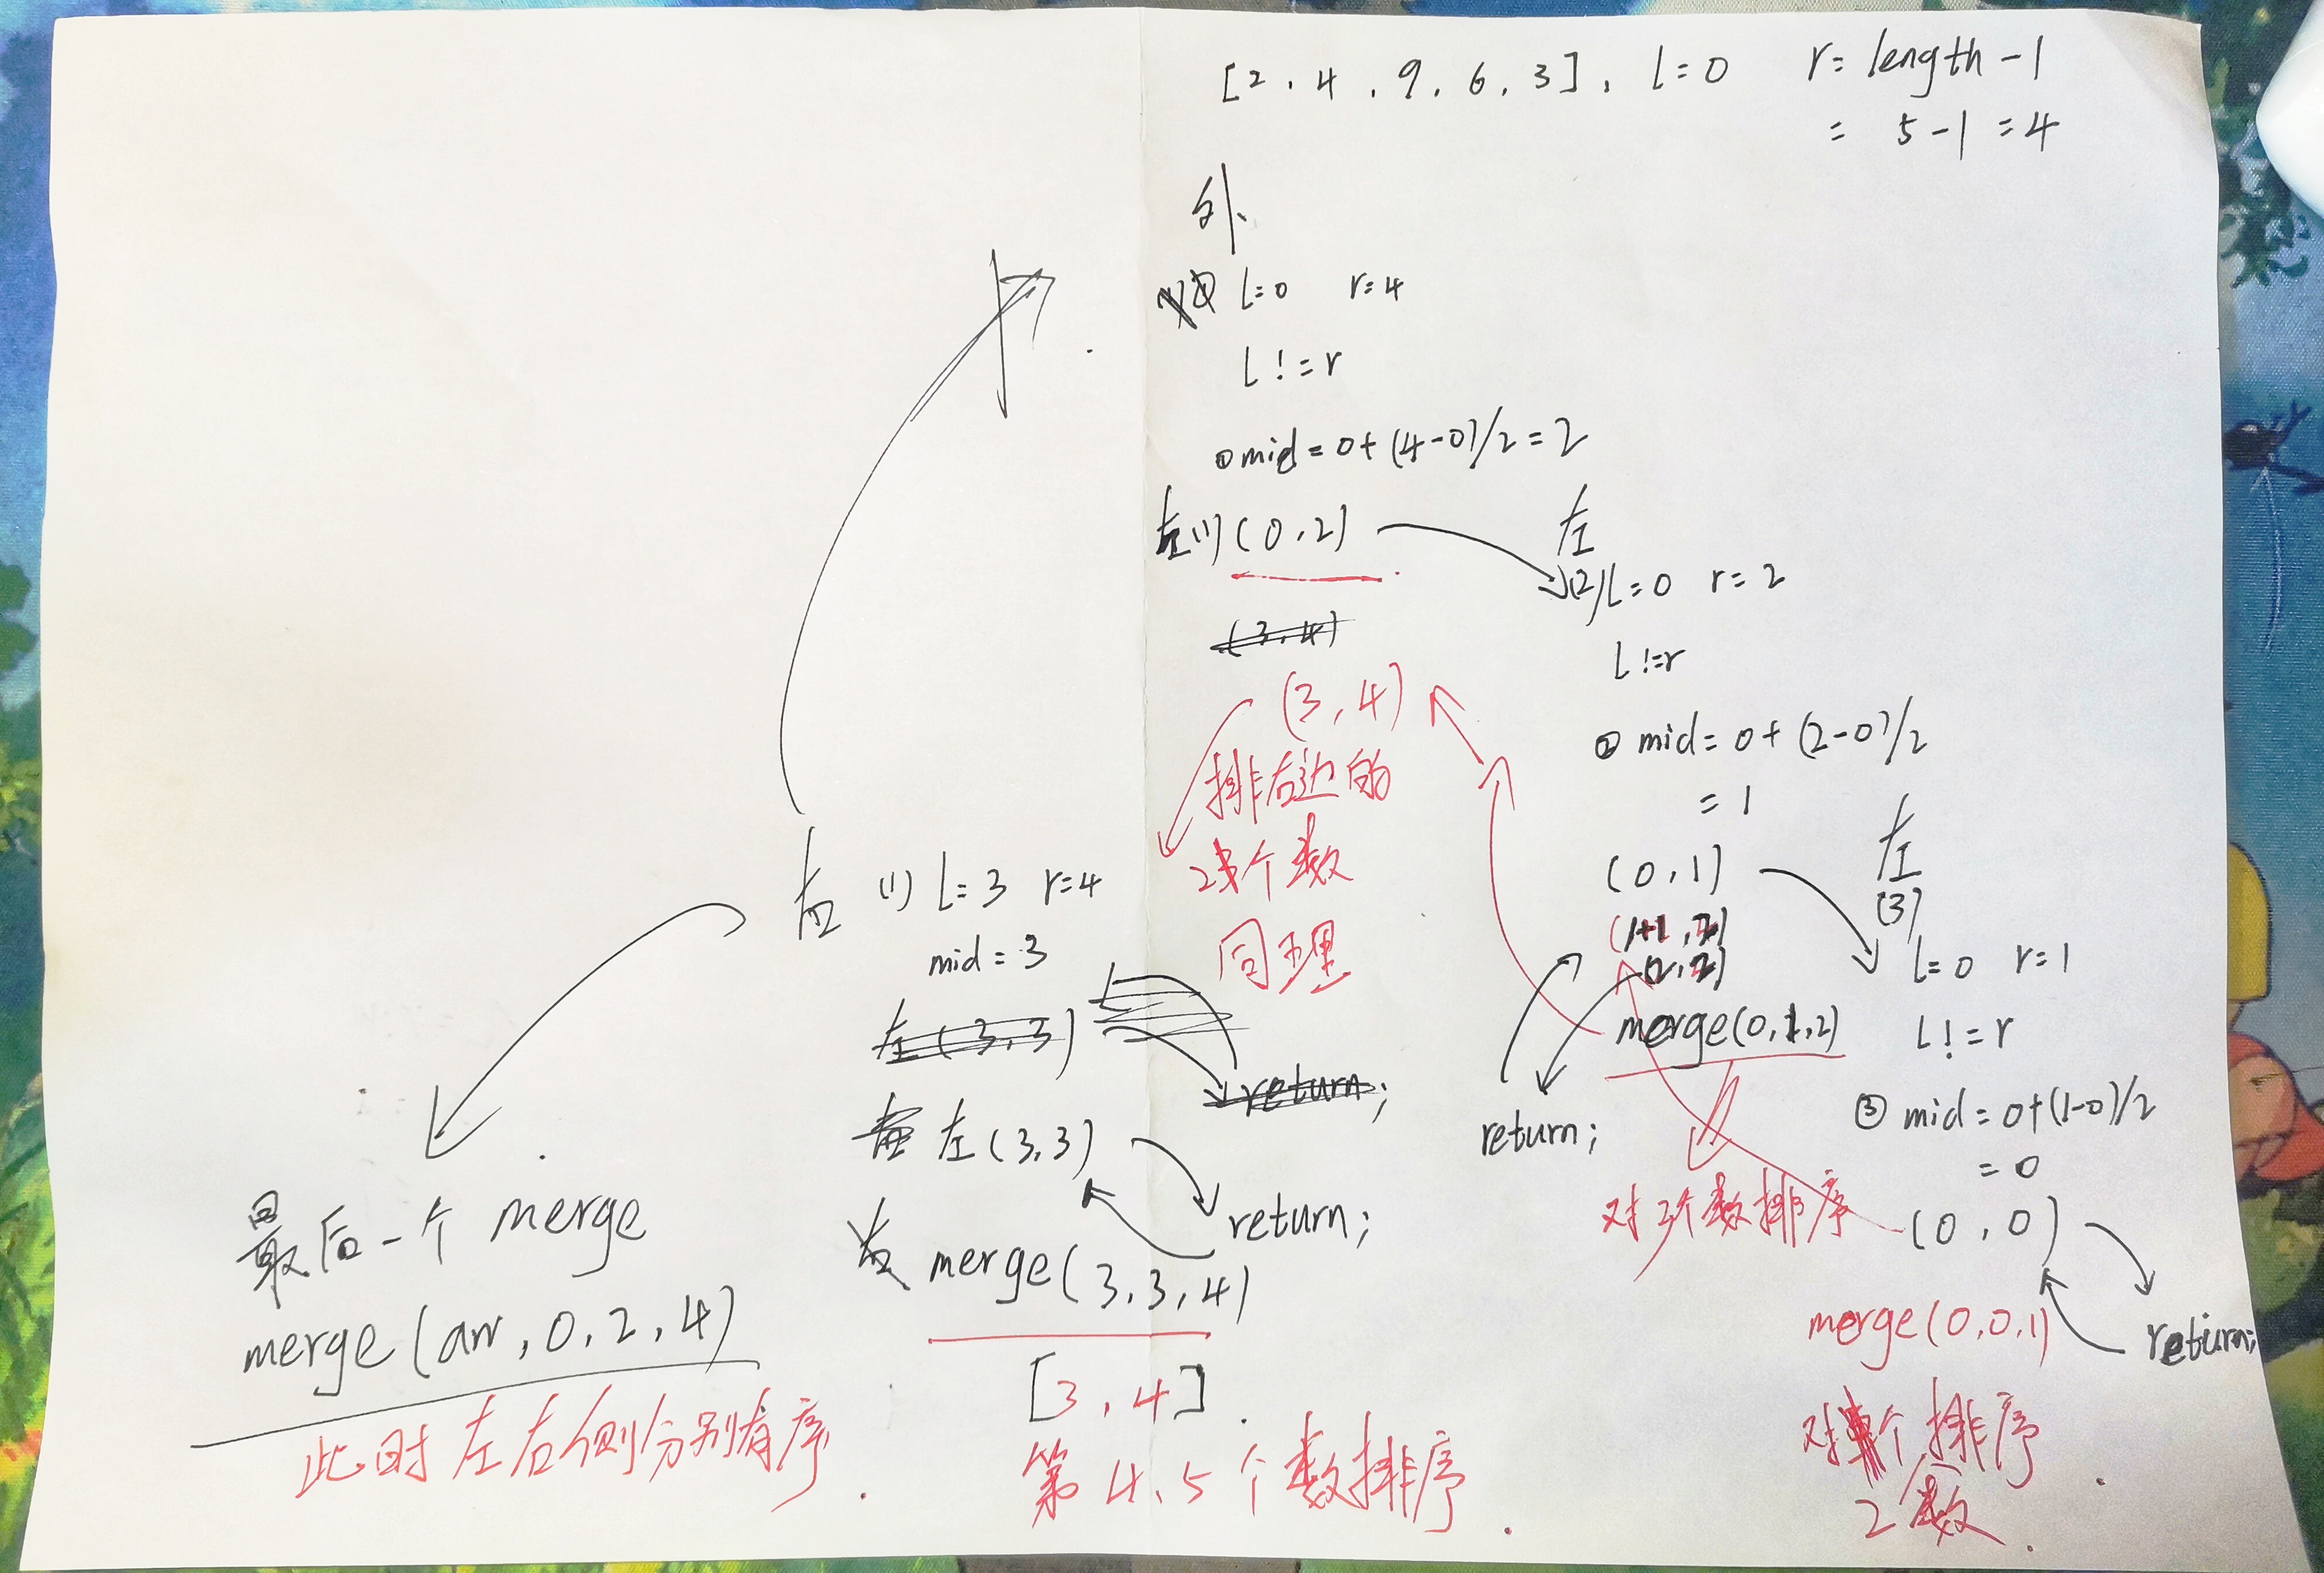 [2, 4, 9, 6, 3], l=0 r=length-1
= 5-1=4
外
l=0 r=4
l!=r
①mid=0+(4-0)/2=2
左(1)(0,2)
(3,4)
(3,4)
排右边的
2个数
同理
左
(2)l=0 r=2
l!=r
② mid=0+(2-0)/2
=1
(0,1)
(1+1,2)
(2,2)
merge(0,1,2)
return;
对3个数排序
左
(3)
l=0 r=1
l!=r
③ mid=0+(1-0)/2
=0
(0,0)
return;
merge(0,0,1)
对个排序
2数
右 (1) l=3 r=4
mid=3
左(3,3)
return;
左(3,3)
return;
右
merge(3,3,4)
[3,4]
第4、5个数排序
最后一个merge
merge(arr,0,2,4)
此时左右侧分别有序